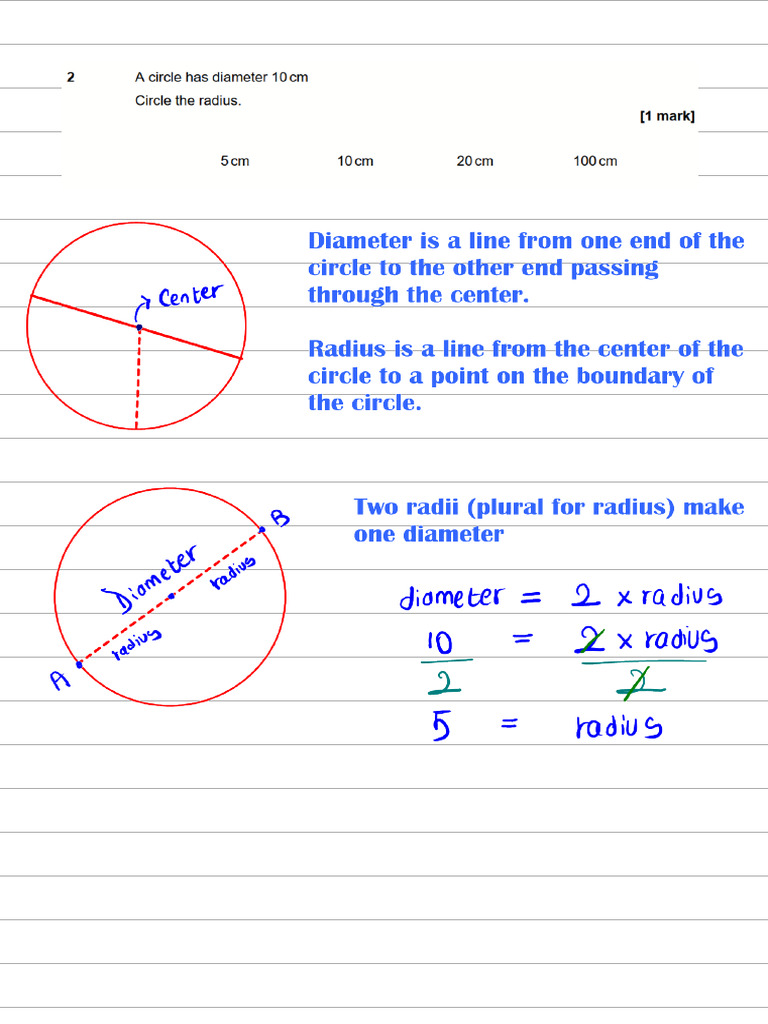 2 A circle has diameter 10 cm
Circle the radius.
[1 mark]
5 cm 10 cm 20 cm 100 cm
Diameter is a line from one end of the
circle to the other end passing
through the center.
Center
Radius is a line from the center of the
circle to a point on the boundary of
the circle.
Two radii (plural for radius) make
one diameter
B
Diameter
radius
radius
A
diameter = 2 x radius
10 = 2 x radius
2 2
5 = radius